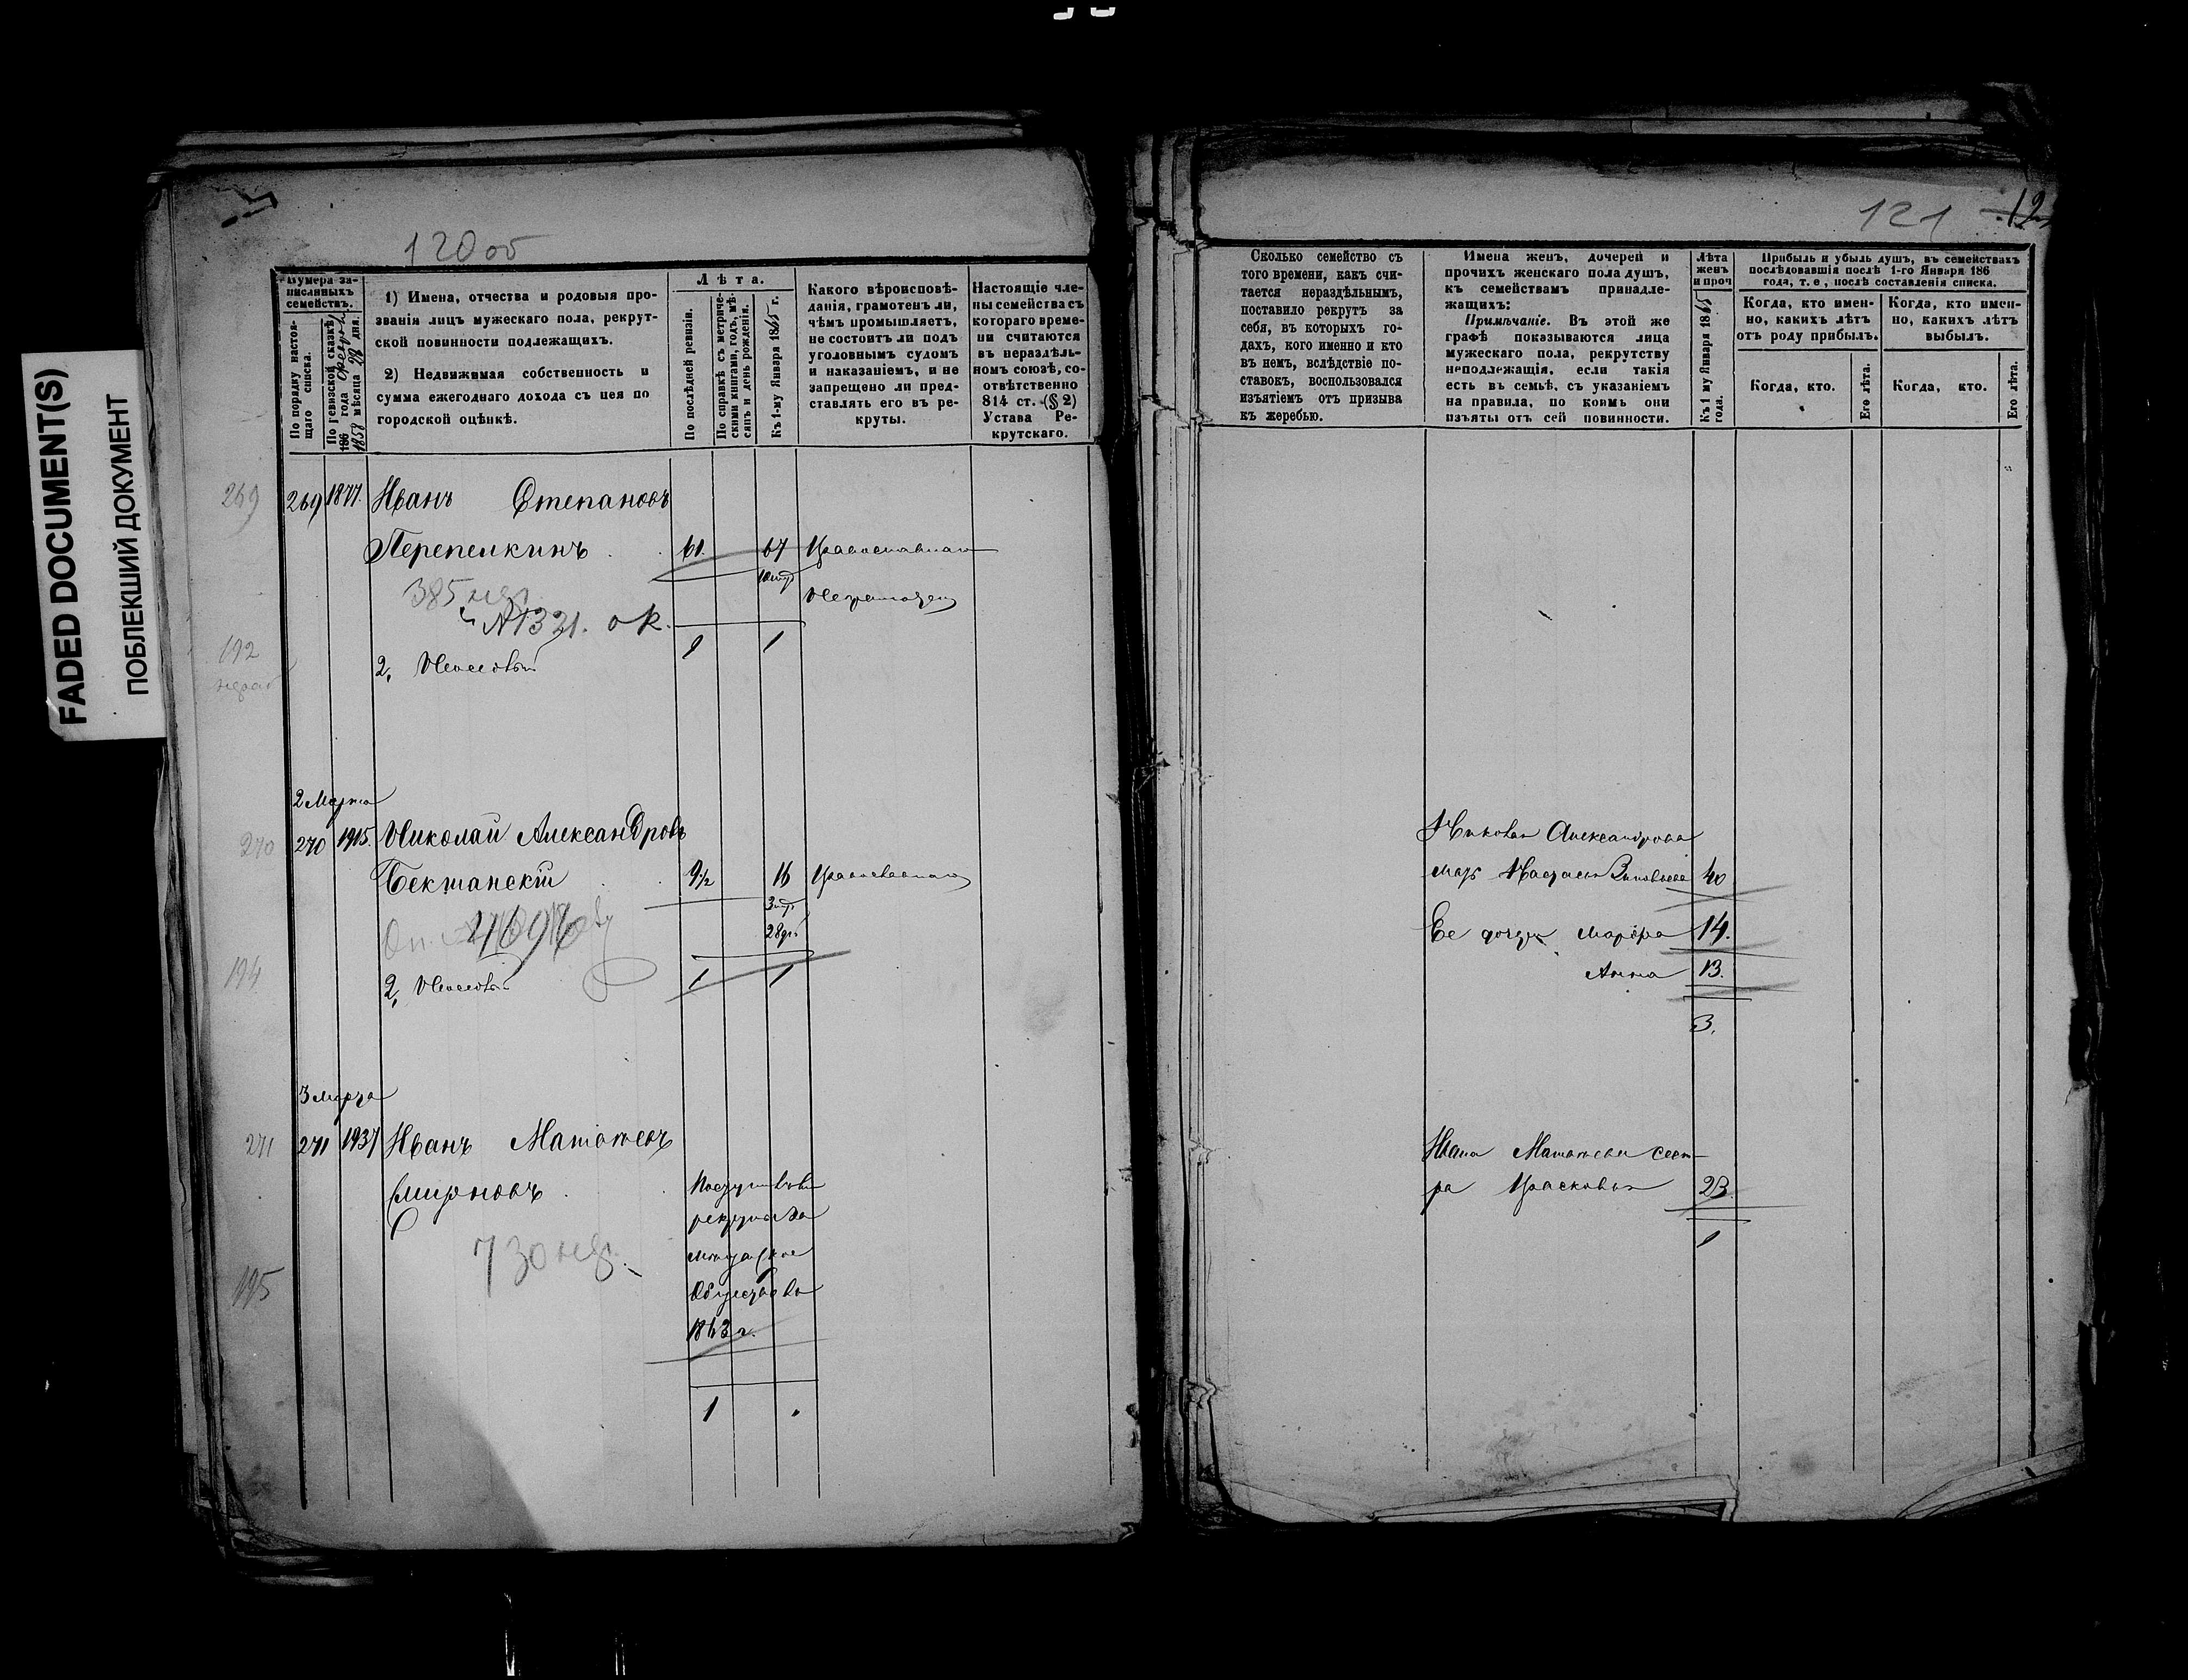 FADED DOCUMENT(S)
ПОБЛЕКШИЙ ДОКУМЕНТ
120 об
Нумера за-
писанныхъ
семействъ.
По порядку настоя-
щаго списка.
По ревизской сказкѣ
186 года
1858 мѣсяца 28 дня.
1) Имена, отчества и родовыя про-
званія лицъ мужескаго пола, рекрут-
ской повинности подлежащихъ.
2) Недвижимая собственность и
сумма ежегоднаго дохода съ нея по
городской оцѣнкѣ.
Лѣта.
По послѣдней ревизіи.
По справкѣ съ метриче-
скими книгами, годъ, мѣ-
сяцъ и день рожденія.
Къ 1-му Января 1865 г.
Какого вѣроисповѣ-
данія, грамотенъ ли,
чѣмъ промышляетъ,
не состоитъ ли подъ
уголовнымъ судомъ
и наказаніемъ, и не
запрещено ли пред-
ставлять его въ ре-
круты.
Настоящіе чле-
ны семейства съ
котораго време-
ни считаются
въ нераздѣль-
номъ союзѣ, со-
отвѣтственно
814 ст. (§ 2)
Устава Ре-
крутскаго.
269 269 1877. Иванъ Степановъ
Перепелкинъ 61. 67 Православнаго
Неграмотенъ
385
№1321. ок.
192
1 1
2,
2 Марта
270 270 1915. Николай Александровъ
Бектанскій 9½ 16 Православнаго
28
4696
194
2, 1 1
3 марта
271 271 1937 Иванъ Матвѣевъ
Смирновъ
рекруты за
Общество
1863 г.
730
195
1
121
Сколько семейство съ
того времени, какъ счи-
тается нераздѣльнымъ,
поставило рекрутъ за
себя, въ которыхъ го-
дахъ, кого именно и кто
въ немъ, вслѣдствіе по-
ставокъ, воспользовался
изъятіемъ отъ призыва
къ жеребью.
Имена женъ, дочерей и
прочихъ женскаго пола душъ,
къ семействамъ принадле-
жащихъ:
Примѣчаніе. Въ этой же
графѣ показываются лица
мужескаго пола, рекрутству
неподлежащія, если такія
есть въ семьѣ, съ указаніемъ
на правила, по коимъ они
изъяты отъ сей повинности.
Лѣта
женъ
и проч
Къ 1 му Января 1865
года.
Прибыль и убыль душъ, въ семействахъ
послѣдовавшія послѣ 1-го Января 186
года, т. е., послѣ составленія списка.
Когда, кто имен-
но, какихъ лѣтъ
отъ роду прибылъ.
Когда, кто имен-
но, какихъ лѣтъ
выбылъ.
Когда, кто.
Его лѣта.
Когда, кто.
Его лѣта.
Николая Александрова
мать 40
Ее дочери Марфа 14.
Анна 13.
3.
Ивана Матвѣева сест-
ра Прасковья 23
1